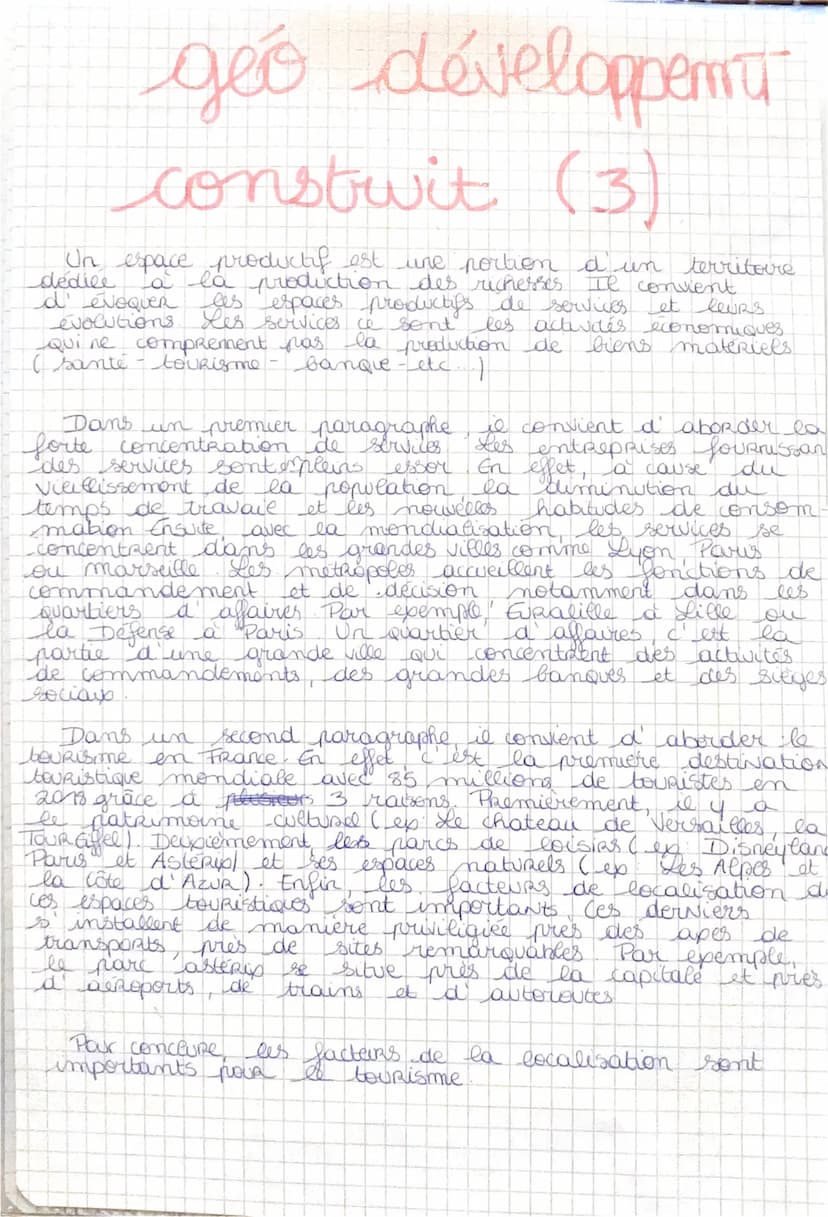 géo développemt
construit (3)
Un espace productif est une portion d'un territoire
dédiée à la production des richesses Il convient
d'évoquer les espaces productifs de services et leurs
évolutions Les services ce sont les activités économiques
qui ne comprement pas la production de biens matériels
(santé - tourisme - banque - etc...)
Dans un premier paragraphe, il convient d'aborder la
forte concentration de services. Les entreprises fournissan
des services sont en pleins essor. En effet, à cause du
vieillissement de la population, la diminution du
temps de travail et les nouvelles habitudes de consom-
mation Ensuite avec la mondialisation, les services se
concentrent dans les grandes villes comme Lyon, Paris
ou marseille. Les métropoles accueillent les fonctions de
commandement et de décision, notamment dans les
quartiers d'affaires. Par exemple, Euralille à Lille ou
la Défense à Paris. Un quartier d'affaires, c'est la
partie d'une grande ville qui concentrent des activités
de commandements, des grandes banques et des sièges
sociaux.
Dans un second paragraphe, il convient d'aborder le
tourisme en France. En effet, c'est la première destination
touristique mondiale avec 85 millions de touristes en
2018 grâce à plusieurs 3 raisons. Premièrement, il y a
le patrimoine culturel (ex: Le chateau de Versailles, la
Tour Eiffel). Deuxièmement, les parcs de loisirs (ex: Disneyland
Paris et Astérix) et ses espaces naturels (ex: Les Alpes et
la Côte d'Azur). Enfin, les facteurs de localisation de
ces espaces touristiques sont importants. Ces derniers
s'installent de manière priviligiée près des axes de
transports, près de sites remarquables. Par exemple,
le parc astérix se situe près de la capitale et près
d'aéroports, de trains et d'autoroutes
Pour conclure, les facteurs de la localisation sont
importants pour le tourisme.